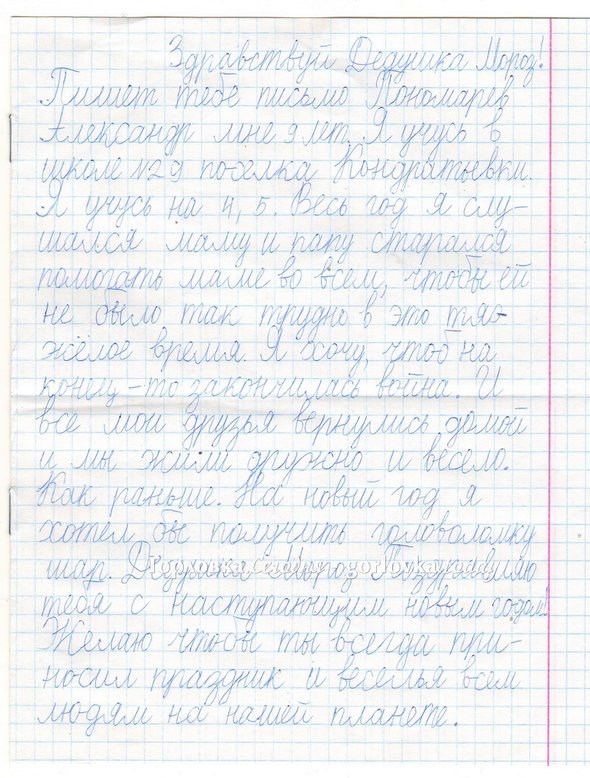 Здравствуй Дедушка Мороз!
Пишет тебе письмо Пономарев
Александр мне 9 лет. Я учусь в
школе №29 поселка Кондратьевки.
Я учусь на 4, 5. Весь год я слу-
шался маму и папу старался
помогать маме во всем, чтобы ей
не было так трудно в это тяж-
жёлое время. Я хочу, чтоб на
конец-то закончилась война. И
все мои друзья вернулись домой
и мы жили дружно и весело.
Как раньше. На новый год я
хотел бы получить головоломку
шар. Дедушка Мороз Поздравляю
тебя с наступающим новым годом!
Желаю чтобы ты всегда при-
носил праздник и веселья всем
людям на нашей планете.